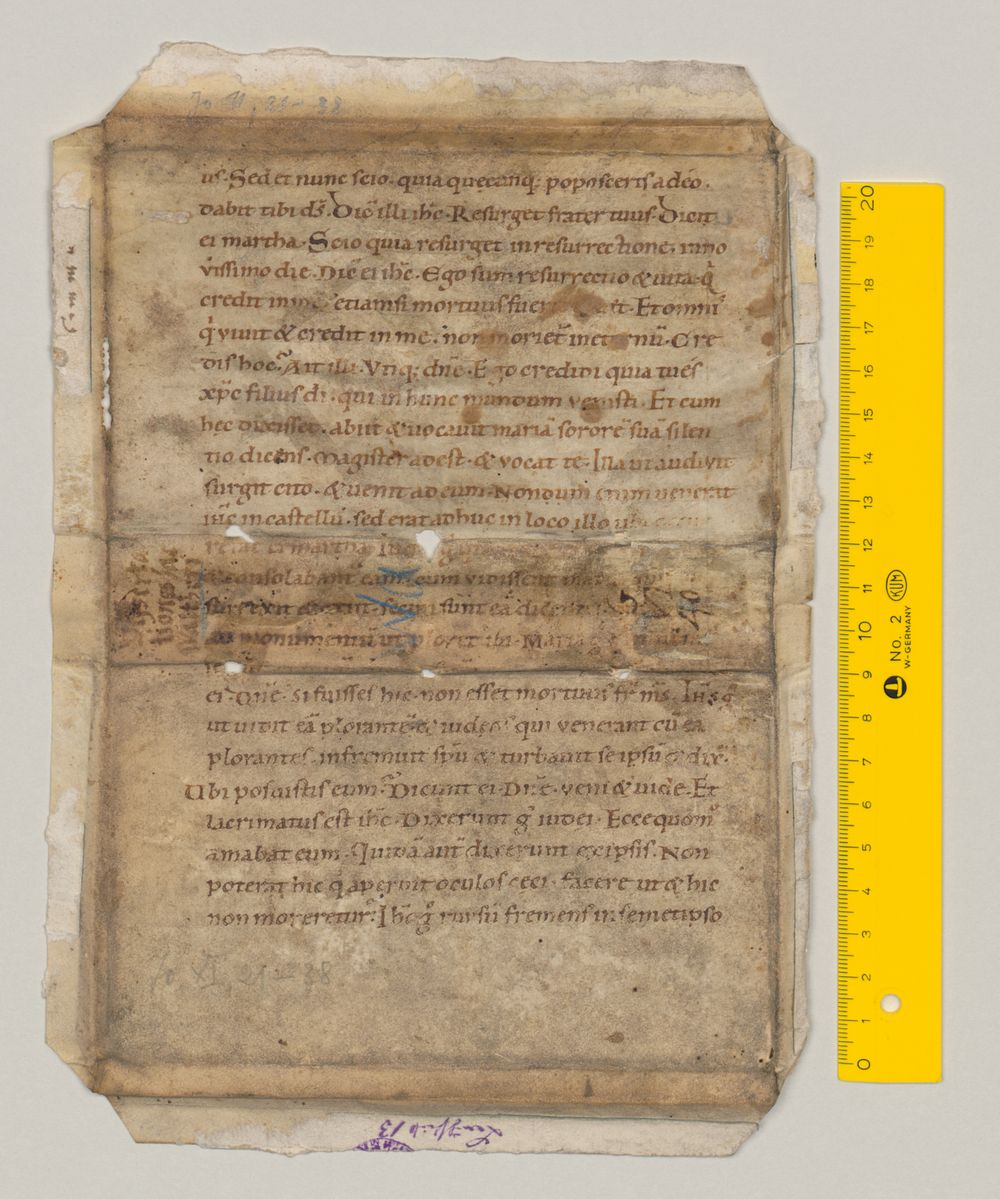 Jo 11, 21-38
us. Sed et nunc scio. quia quecunq; poposceris a deo.
dabit tibi ds̄. Dic̄ illi ih̄c. Resurget frater tuus. Dicit
ei martha. Scio quia resurget in resurrectione. inno
vissimo die. Dic̄ ei ih̄c. Ego sum resurrectio & uita. q̇
credit in me etiamsi mortuus fuerit Et omnis
q̇ vivit & credit in me. non moriet̄ in eternū. Cre
dis hoc. Ait illi. Vtiq; dn̄e. Ego credidi quia tu es
xp̄c filius di. qui in hunc mundum venisti. Et cum
hec dixisset. abiit & uocavit mariā sororē suā silen
tio dicens. Magister adest. & vocat te. Illa ut audivit
surgit cito. & venit ad eum. Nondum enim venerat
ih̄c in castellū. sed erat adhuc in loco illo ubi
martha
consolabant̄ eam. cum vidissent
surrexit & exiit. secuti sunt eā dicentes
monumentū ut ploret ibi. Maria
ei. Dn̄e. si fuisses hic. non esset mortuus fr̄ m̄s. Ih̄s g̊
ut uidit eā plorantē & iudeos qui venerant cū ea
plorantes. infremuit sp̄u & turbavit se ipsū & dix̄.
Ubi posuistis eum. Dicunt ei. Dn̄e. veni & uide. Et
lacrimatus est ih̄c. Dixerunt g̊ iudei. Ecce quom̊
amabat eum. Quidā aut̄ dixerunt ex ipsis. Non
poterat hic q̇ aperuit oculos ceci. facere ut & hic
non moreretur. Ih̄c g̊ rursū fremens in semetipso
20
19
18
17
16
15
14
13
12
11
10
9
8
7
6
5
4
3
2
1
0
No. 2
KUM
W-GERMANY